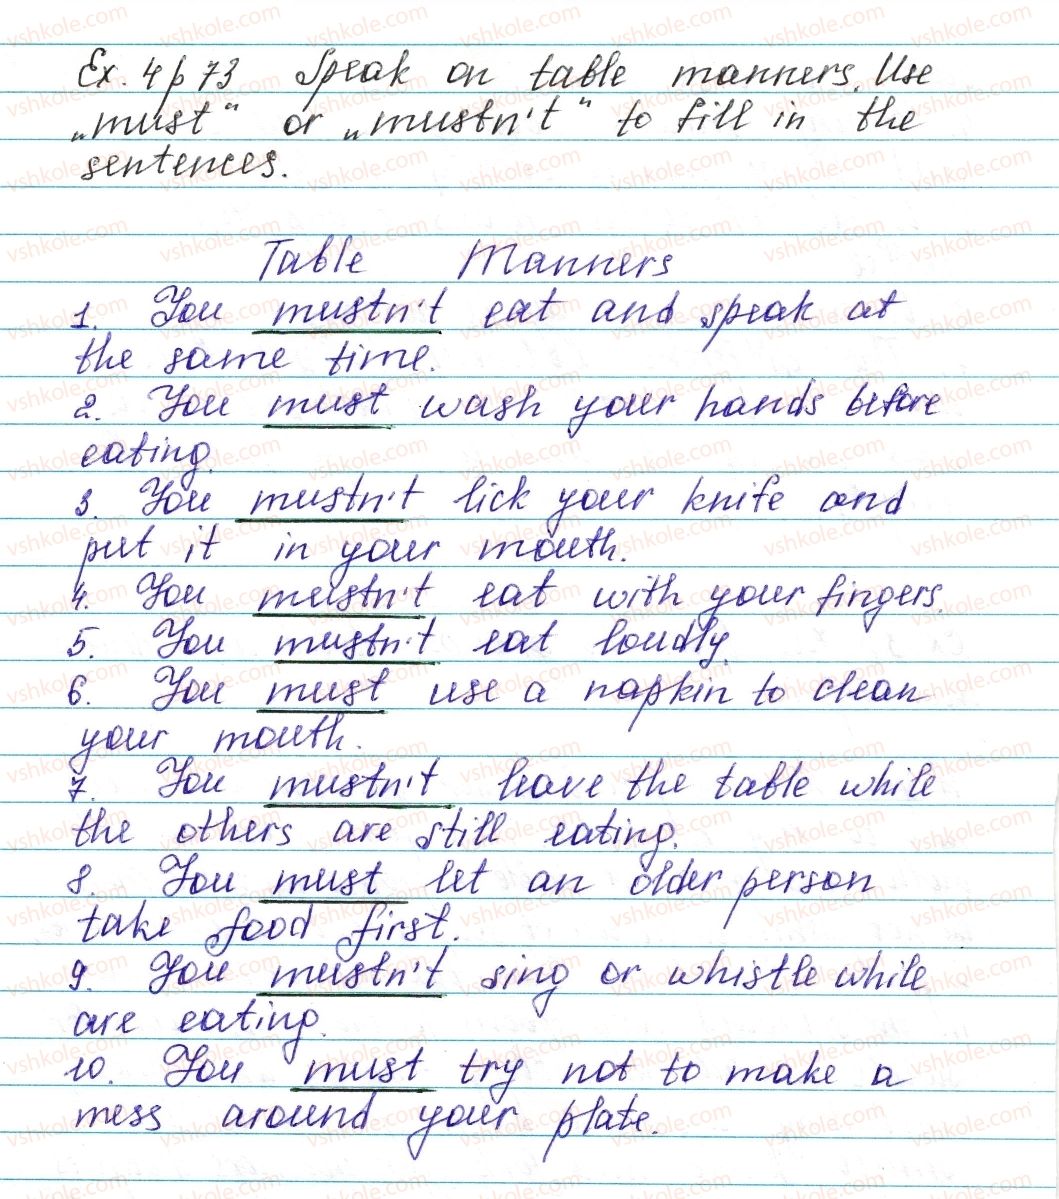 Ex. 4 p 73 Speak on table manners. Use
„must“ or „mustn't“ to fill in the
sentences.
Table Manners
1. You mustn't eat and speak at
the same time.
2. You must wash your hands before
eating.
3. You mustn't lick your knife and
put it in your mouth.
4. You mustn't eat with your fingers.
5. You mustn't eat loudly.
6. You must use a napkin to clean
your mouth.
7. You mustn't leave the table while
the others are still eating.
8. You must let an older person
take food first.
9. You mustn't sing or whistle while
are eating.
10. You must try not to make a
mess around your plate.
vshkole.com